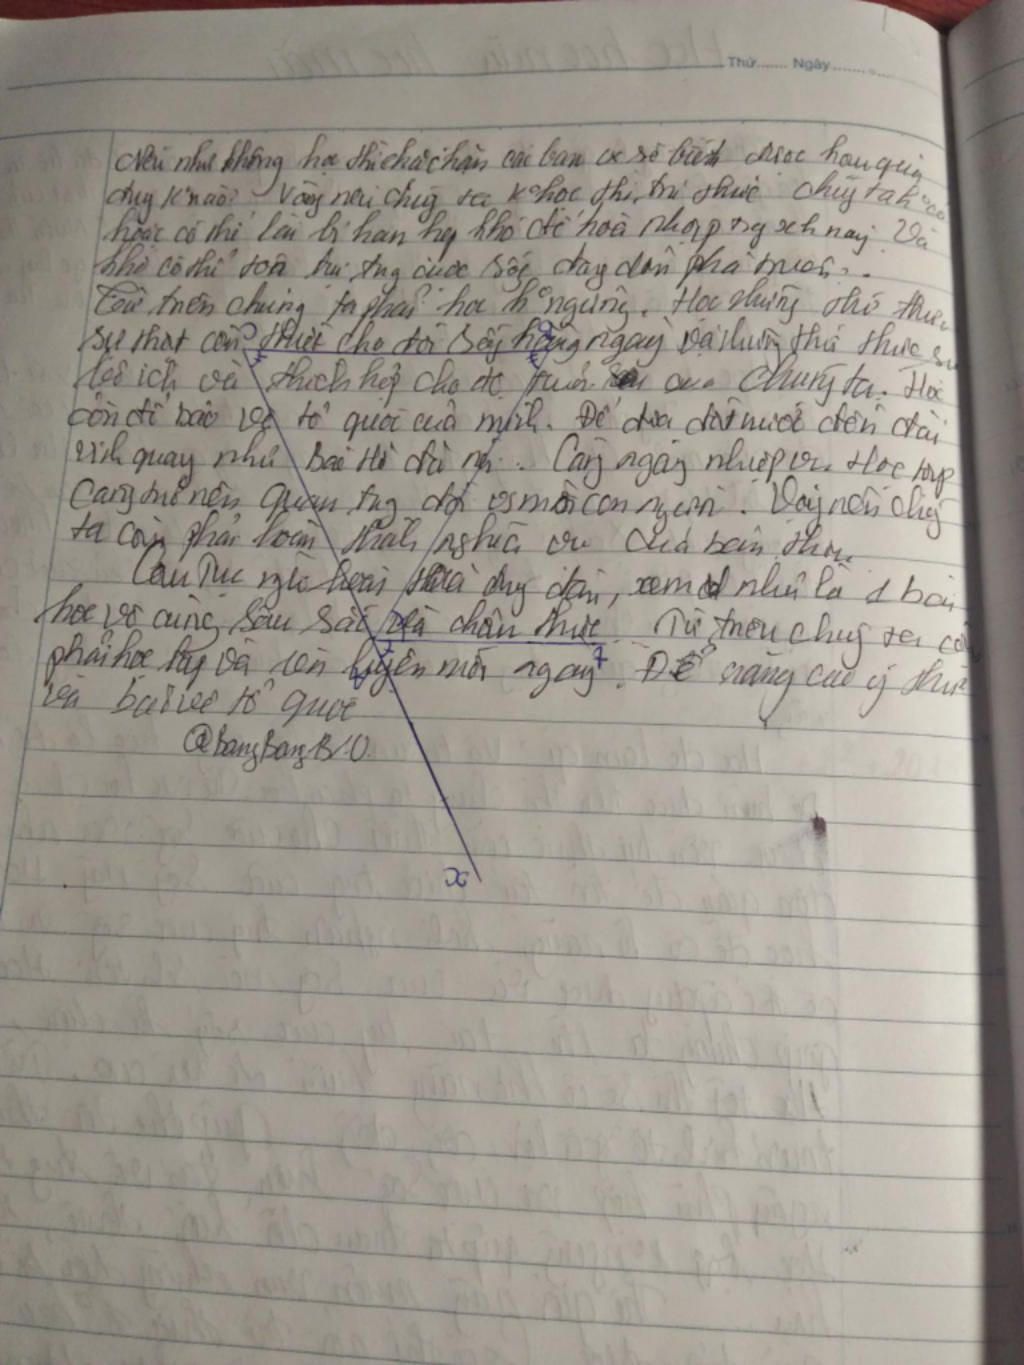 Thứ....... Ngày...........
Nếu như không học thì chắc chắn các bạn sẽ biết được hậu quả
đúng k nào? Vậy nếu chúng ta k học thì tri thức chúng ta
hoặc có thể lại bị hạn hẹp khó để hoà nhập xh này. Và
khó có thể tồn tại trg cuộc sống đầy
Từ trên chúng ta phải học k ngừng. Học những thứ
sự thật cần thiết cho đời sống hằng ngày và những thứ thực sự
bổ ích và thích hợp cho độ tuổi của chúng ta. Học
còn để bảo vệ tổ quốc của mình. Để đưa đất nước đến đài
vinh quang như Bác Hồ đã nói. Càng ngày nhiệm vụ học tập
càng trở nên quan trọng đối vs mỗi con người. Vậy nên chúng
ta cần phải hoàn thành nghĩa vụ của bản thân
Câu tục ngữ hoàn toàn đúng đắn, xem như là 1 bài
học vô cùng sâu sắc và chân thực. Từ trên chúng ta cần
phải học tập và rèn luyện mỗi ngày. Để nâng cao ý thức
và bảo vệ tổ quốc
x